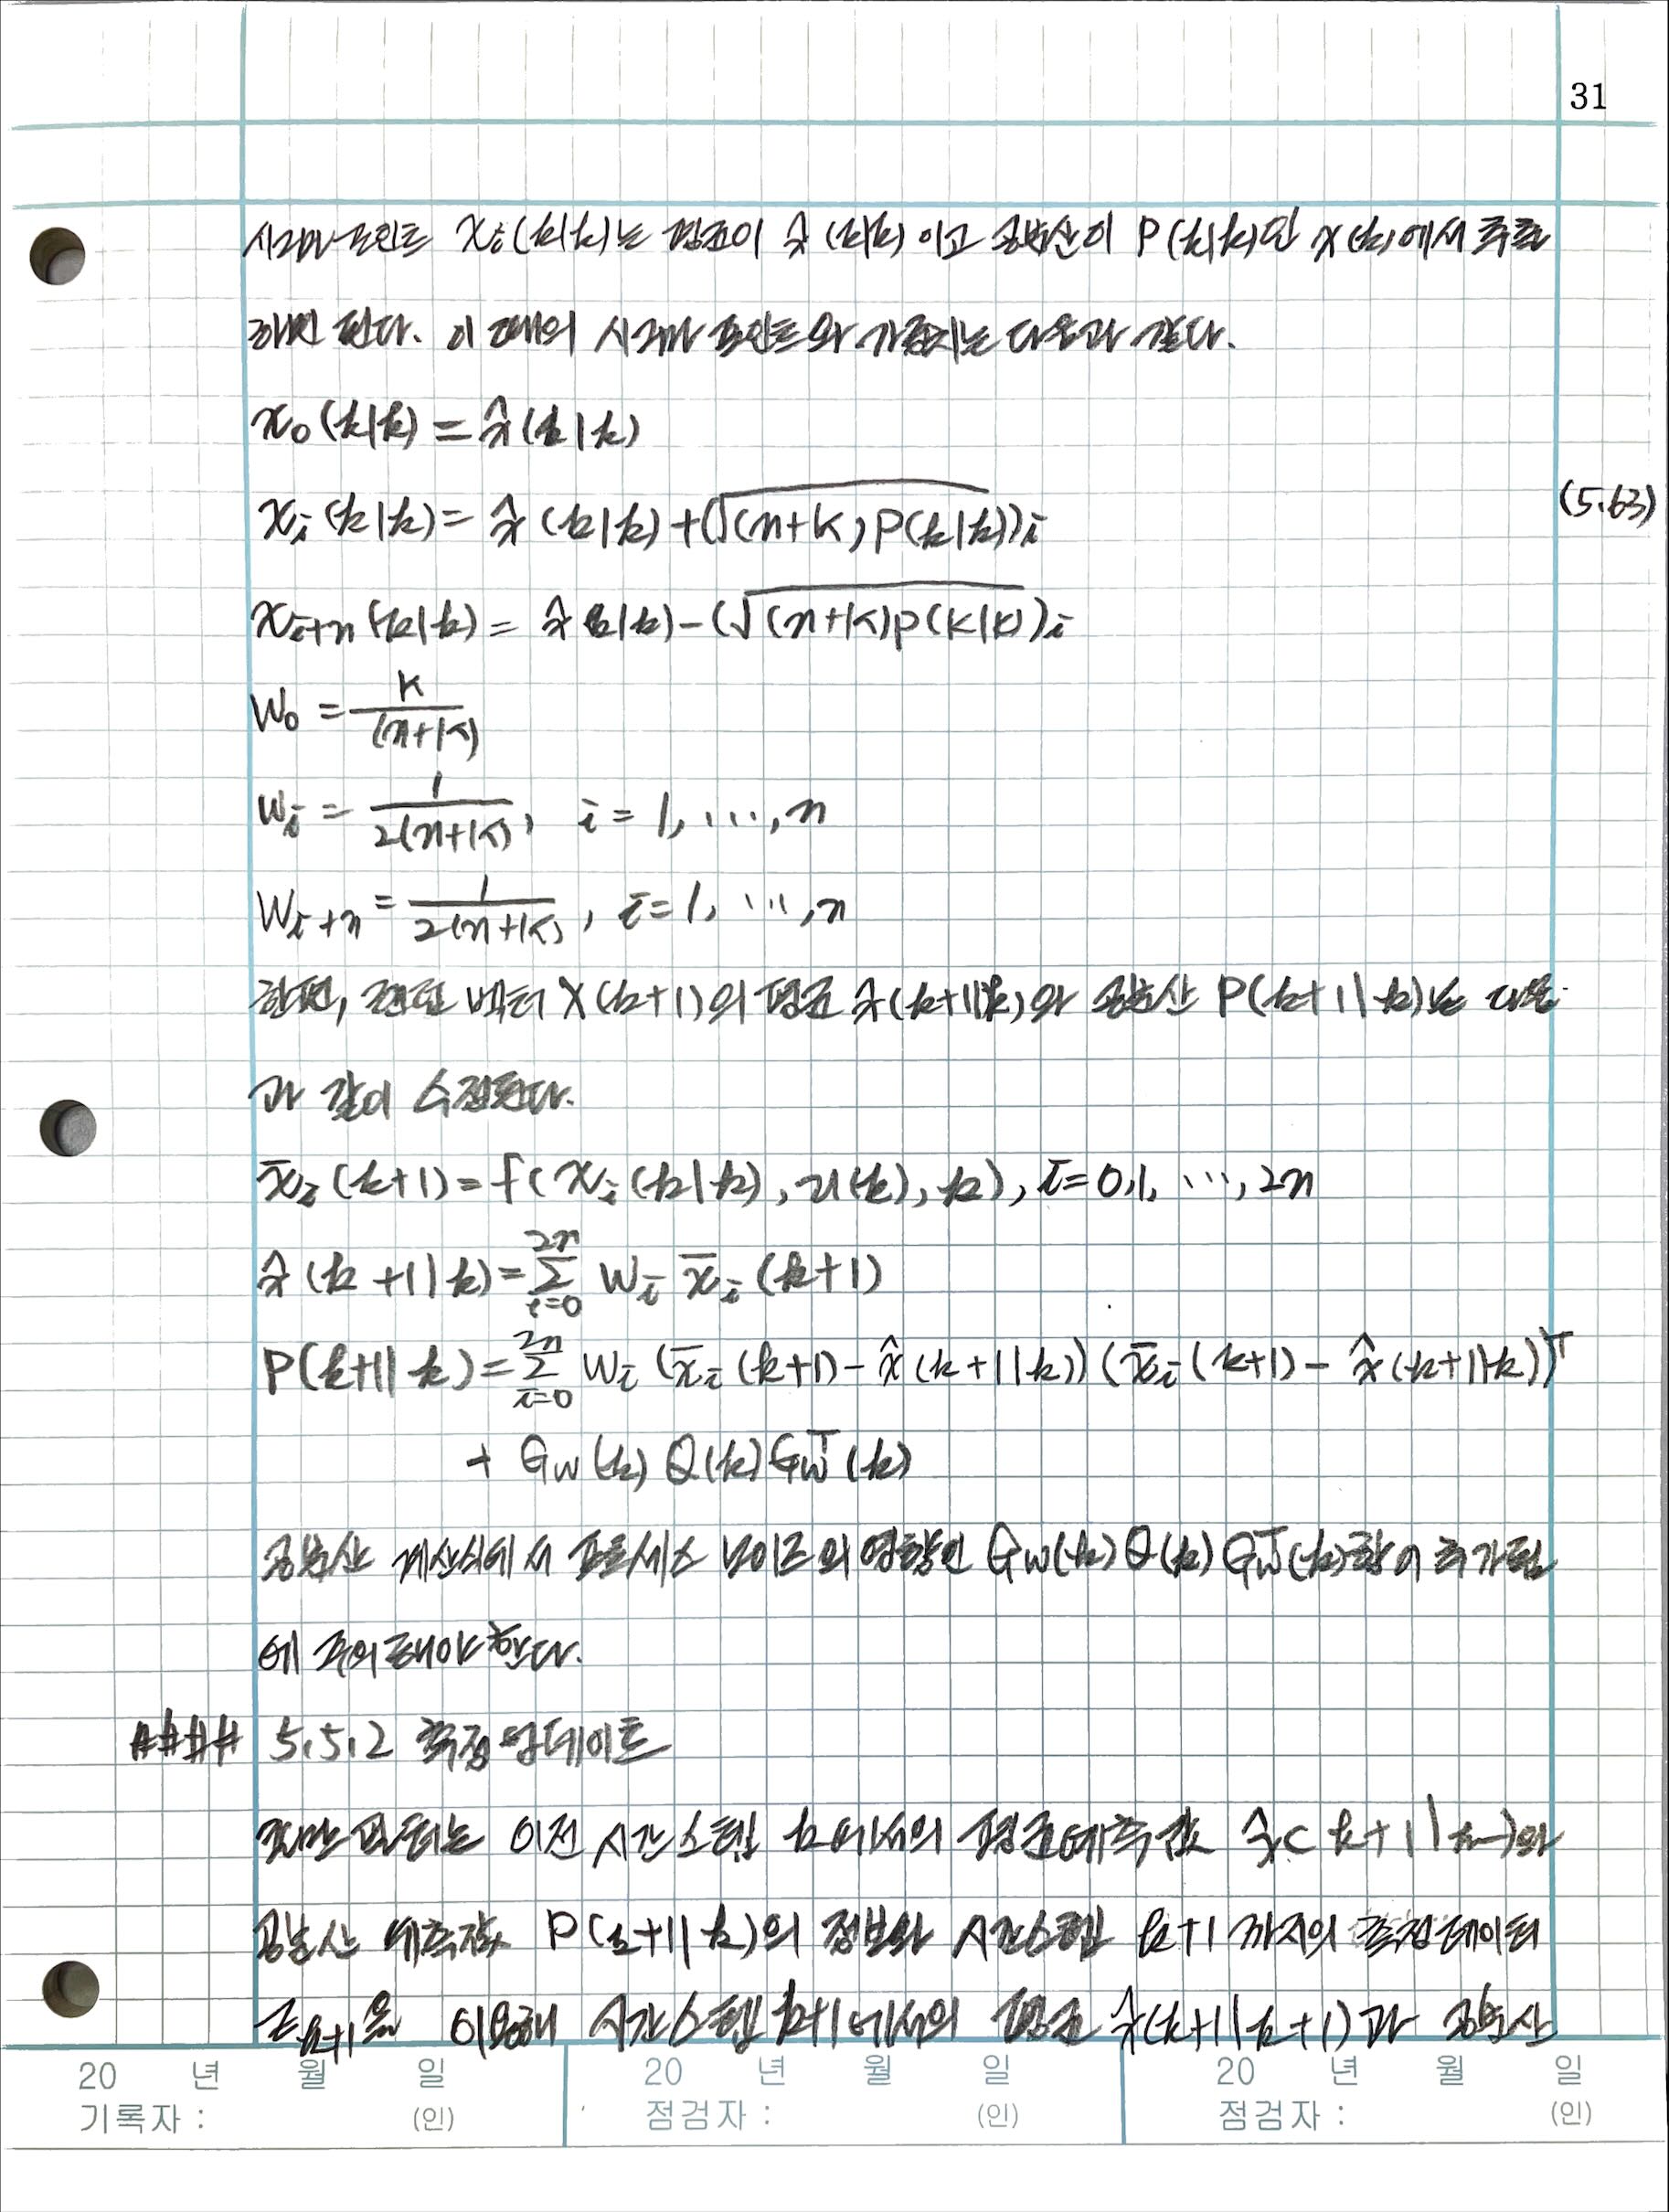 31
시그마 포인트 χᵢ(k|k)는 평균이 x̂(k|k)이고 공분산이 P(k|k)인 x(k)에서 추출
하면 된다. 이 때의 시그마 포인트와 가중치는 다음과 같다.
χ₀(k|k) = x̂(k|k)
χᵢ(k|k) = x̂(k|k) + (√((n+κ)P(k|k)))ᵢ (5.63)
χᵢ₊ₙ(k|k) = x̂(k|k) - (√((n+κ)P(k|k)))ᵢ
W₀ = κ/(n+κ)
Wᵢ = 1/(2(n+κ)), i = 1, ..., n
Wᵢ₊ₙ = 1/(2(n+κ)), i = 1, ..., n
한편, 랜덤 벡터 X(k+1)의 평균 x̂(k+1|k)와 공분산 P(k+1|k)는 다음
과 같이 수정된다.
χ̄ᵢ(k+1) = f(χᵢ(k|k), u(k), k), i = 0,1, ..., 2n
x̂(k+1|k) = Σᵢ₌₀²ⁿ Wᵢ χ̄ᵢ(k+1)
P(k+1|k) = Σᵢ₌₀²ⁿ Wᵢ (χ̄ᵢ(k+1) - x̂(k+1|k)) (χ̄ᵢ(k+1) - x̂(k+1|k))ᵀ
+ G_w(k) Q(k) G_wᵀ(k)
공분산 계산식에서 프로세스 노이즈의 영향인 G_w(k) Q(k) G_wᵀ(k)항이 추가됨
에 주의해야 한다.
#### 5.5.2 측정 업데이트
칼만 필터는 이전 시간스텝 k에서의 평균예측값 x̂(k+1|k)와
공분산 예측값 P(k+1|k)의 정보와 시간스텝 k+1 까지의 측정 데이터
Z_k+1을 이용해 시간스텝 k+1에서의 평균 x̂(k+1|k+1)과 공분산
20 년 월 일 20 년 월 일 20 년 월 일
기록자 : (인) 점검자 : (인) 점검자 : (인)